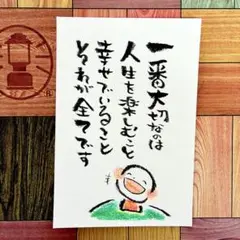 一番大切なのは
人生を楽しむこと
幸せでいること
それが全てです